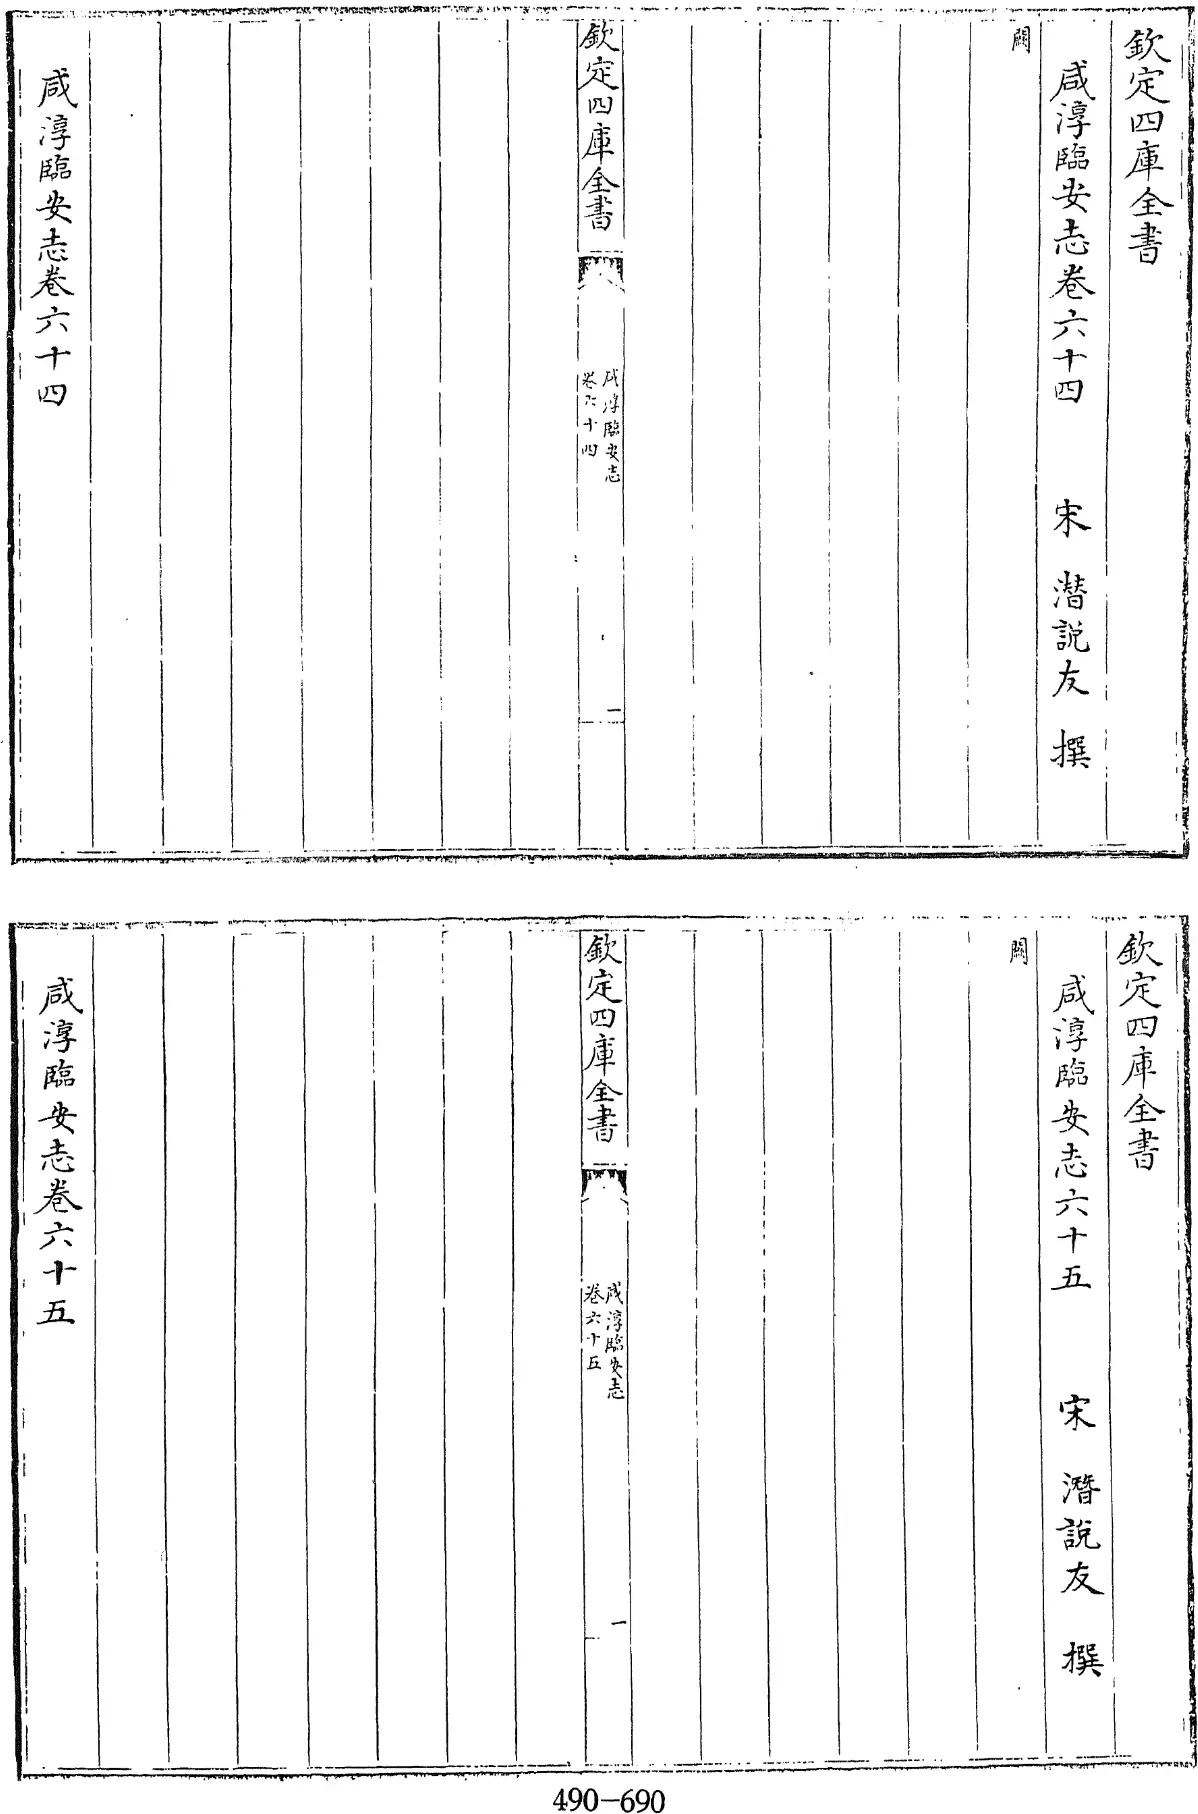 欽定四庫全書
咸淳臨安志卷六十四
宋 潛說友 撰
闕
欽定四庫全書
咸淳臨安志
卷六十四
一
咸淳臨安志卷六十四
欽定四庫全書
咸淳臨安志六十五
宋 潛說友 撰
闕
欽定四庫全書
咸淳臨安志
卷六十五
一
咸淳臨安志卷六十五
490-690